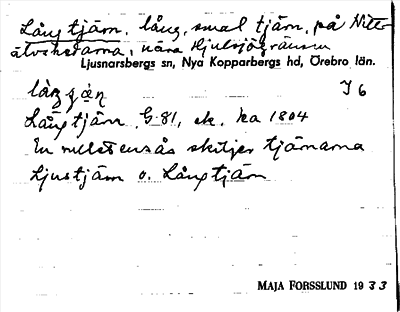 Långtjärn, lång, smal tjärn, på Nitt-
älvshedarna, nära Hjulsjögränsen
Ljusnarsbergs sn, Nya Kopparbergs hd, Örebro län.
I 6
Långtjärn G-81, ek. ka 1804
En rullstensås skiljer tjärnarna
Ljustjärn o. Långtjärn
MAJA FORSSLUND 1933